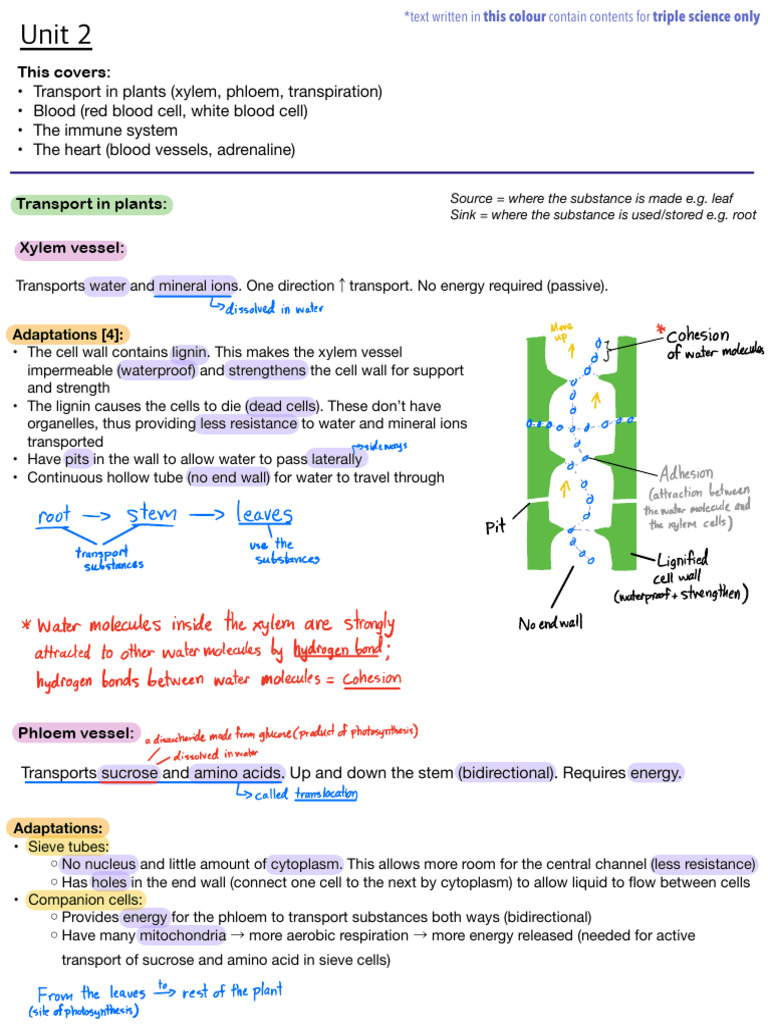 *text written in this colour contain contents for triple science only
Unit 2
This covers:
• Transport in plants (xylem, phloem, transpiration)
• Blood (red blood cell, white blood cell)
• The immune system
• The heart (blood vessels, adrenaline)
Transport in plants:
Source = where the substance is made e.g. leaf
Sink = where the substance is used/stored e.g. root
Xylem vessel:
Transports water and mineral ions. One direction ↑ transport. No energy required (passive).
dissolved in water
Adaptations [4]:
• The cell wall contains lignin. This makes the xylem vessel
impermeable (waterproof) and strengthens the cell wall for support
and strength
• The lignin causes the cells to die (dead cells). These don't have
organelles, thus providing less resistance to water and mineral ions
transported
→sideways
• Have pits in the wall to allow water to pass laterally
• Continuous hollow tube (no end wall) for water to travel through
root → stem → leaves
transport
substances
use the
substances
Move
up
* Cohesion
of water molecules
Adhesion
(attraction between
the water molecule and
the xylem cells)
Pit
Lignified
cell wall
(waterproof + strengthen)
No end wall
* Water molecules inside the xylem are strongly
attracted to other water molecules by hydrogen bond;
hydrogen bonds between water molecules = cohesion
Phloem vessel:
a disaccharide made from glucose (product of photosynthesis)
dissolved in water
Transports sucrose and amino acids. Up and down the stem (bidirectional). Requires energy.
called translocation
Adaptations:
• Sieve tubes:
○ No nucleus and little amount of cytoplasm. This allows more room for the central channel (less resistance)
○ Has holes in the end wall (connect one cell to the next by cytoplasm) to allow liquid to flow between cells
• Companion cells:
○ Provides energy for the phloem to transport substances both ways (bidirectional)
○ Have many mitochondria → more aerobic respiration → more energy released (needed for active
transport of sucrose and amino acid in sieve cells)
From the leaves to → rest of the plant
(site of photosynthesis)